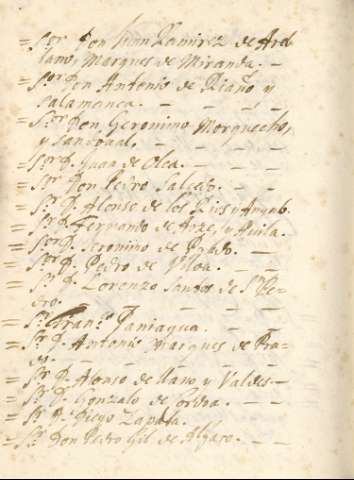 = Sor Don Juan Ramirez de Arel
lano, Marques de Miranda. —
= Sor Don Antonio de Riaño y
Salamanca. — — — —
= Sor Don Geronimo Morquecho,
y Sandoual. — — — —
= Sor D. Juan de Olea. — — —
= Sor Don Pedro Salcedo. — —
= Sr D. Alonso de los Rios y Angulo.
= Sr D. Fernando de Arze, y Auila.
= Sor D. Jeronimo de Prado. —
= Sor D. Pedro de Vlloa. — —
= Sr D. Lorenzo Santos de Sn Pe-
dro. — — — — —
= Sr Franco Paniagua. — —
= Sr D. Antonio Marques de Pra-
do. — — — — —
= Sr D. Alonso de Llano y Valdes. —
= Sr D. Gonzalo de Cordoa. — —
= Sr D. Diego Zapata. — —
= Sr Don Pedro Gil de Alfaro. — —